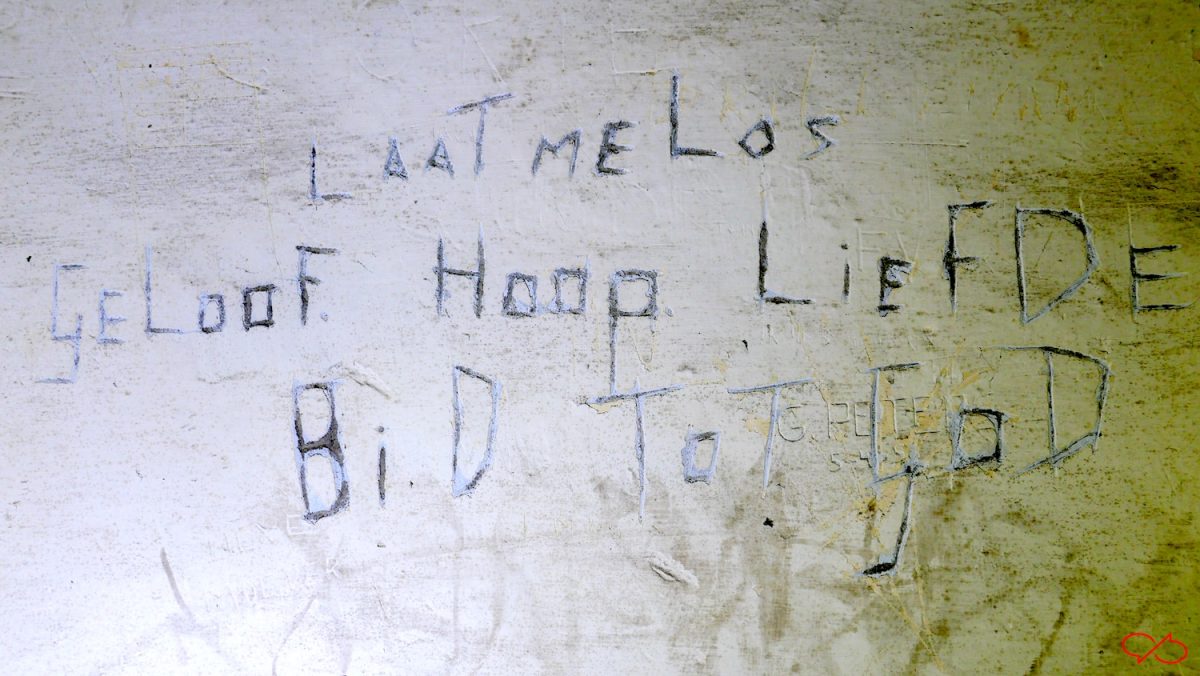 LAAT ME LOS
GELOOF. HOOP. LiEFDE
BiD TOT GOD
G. PETER